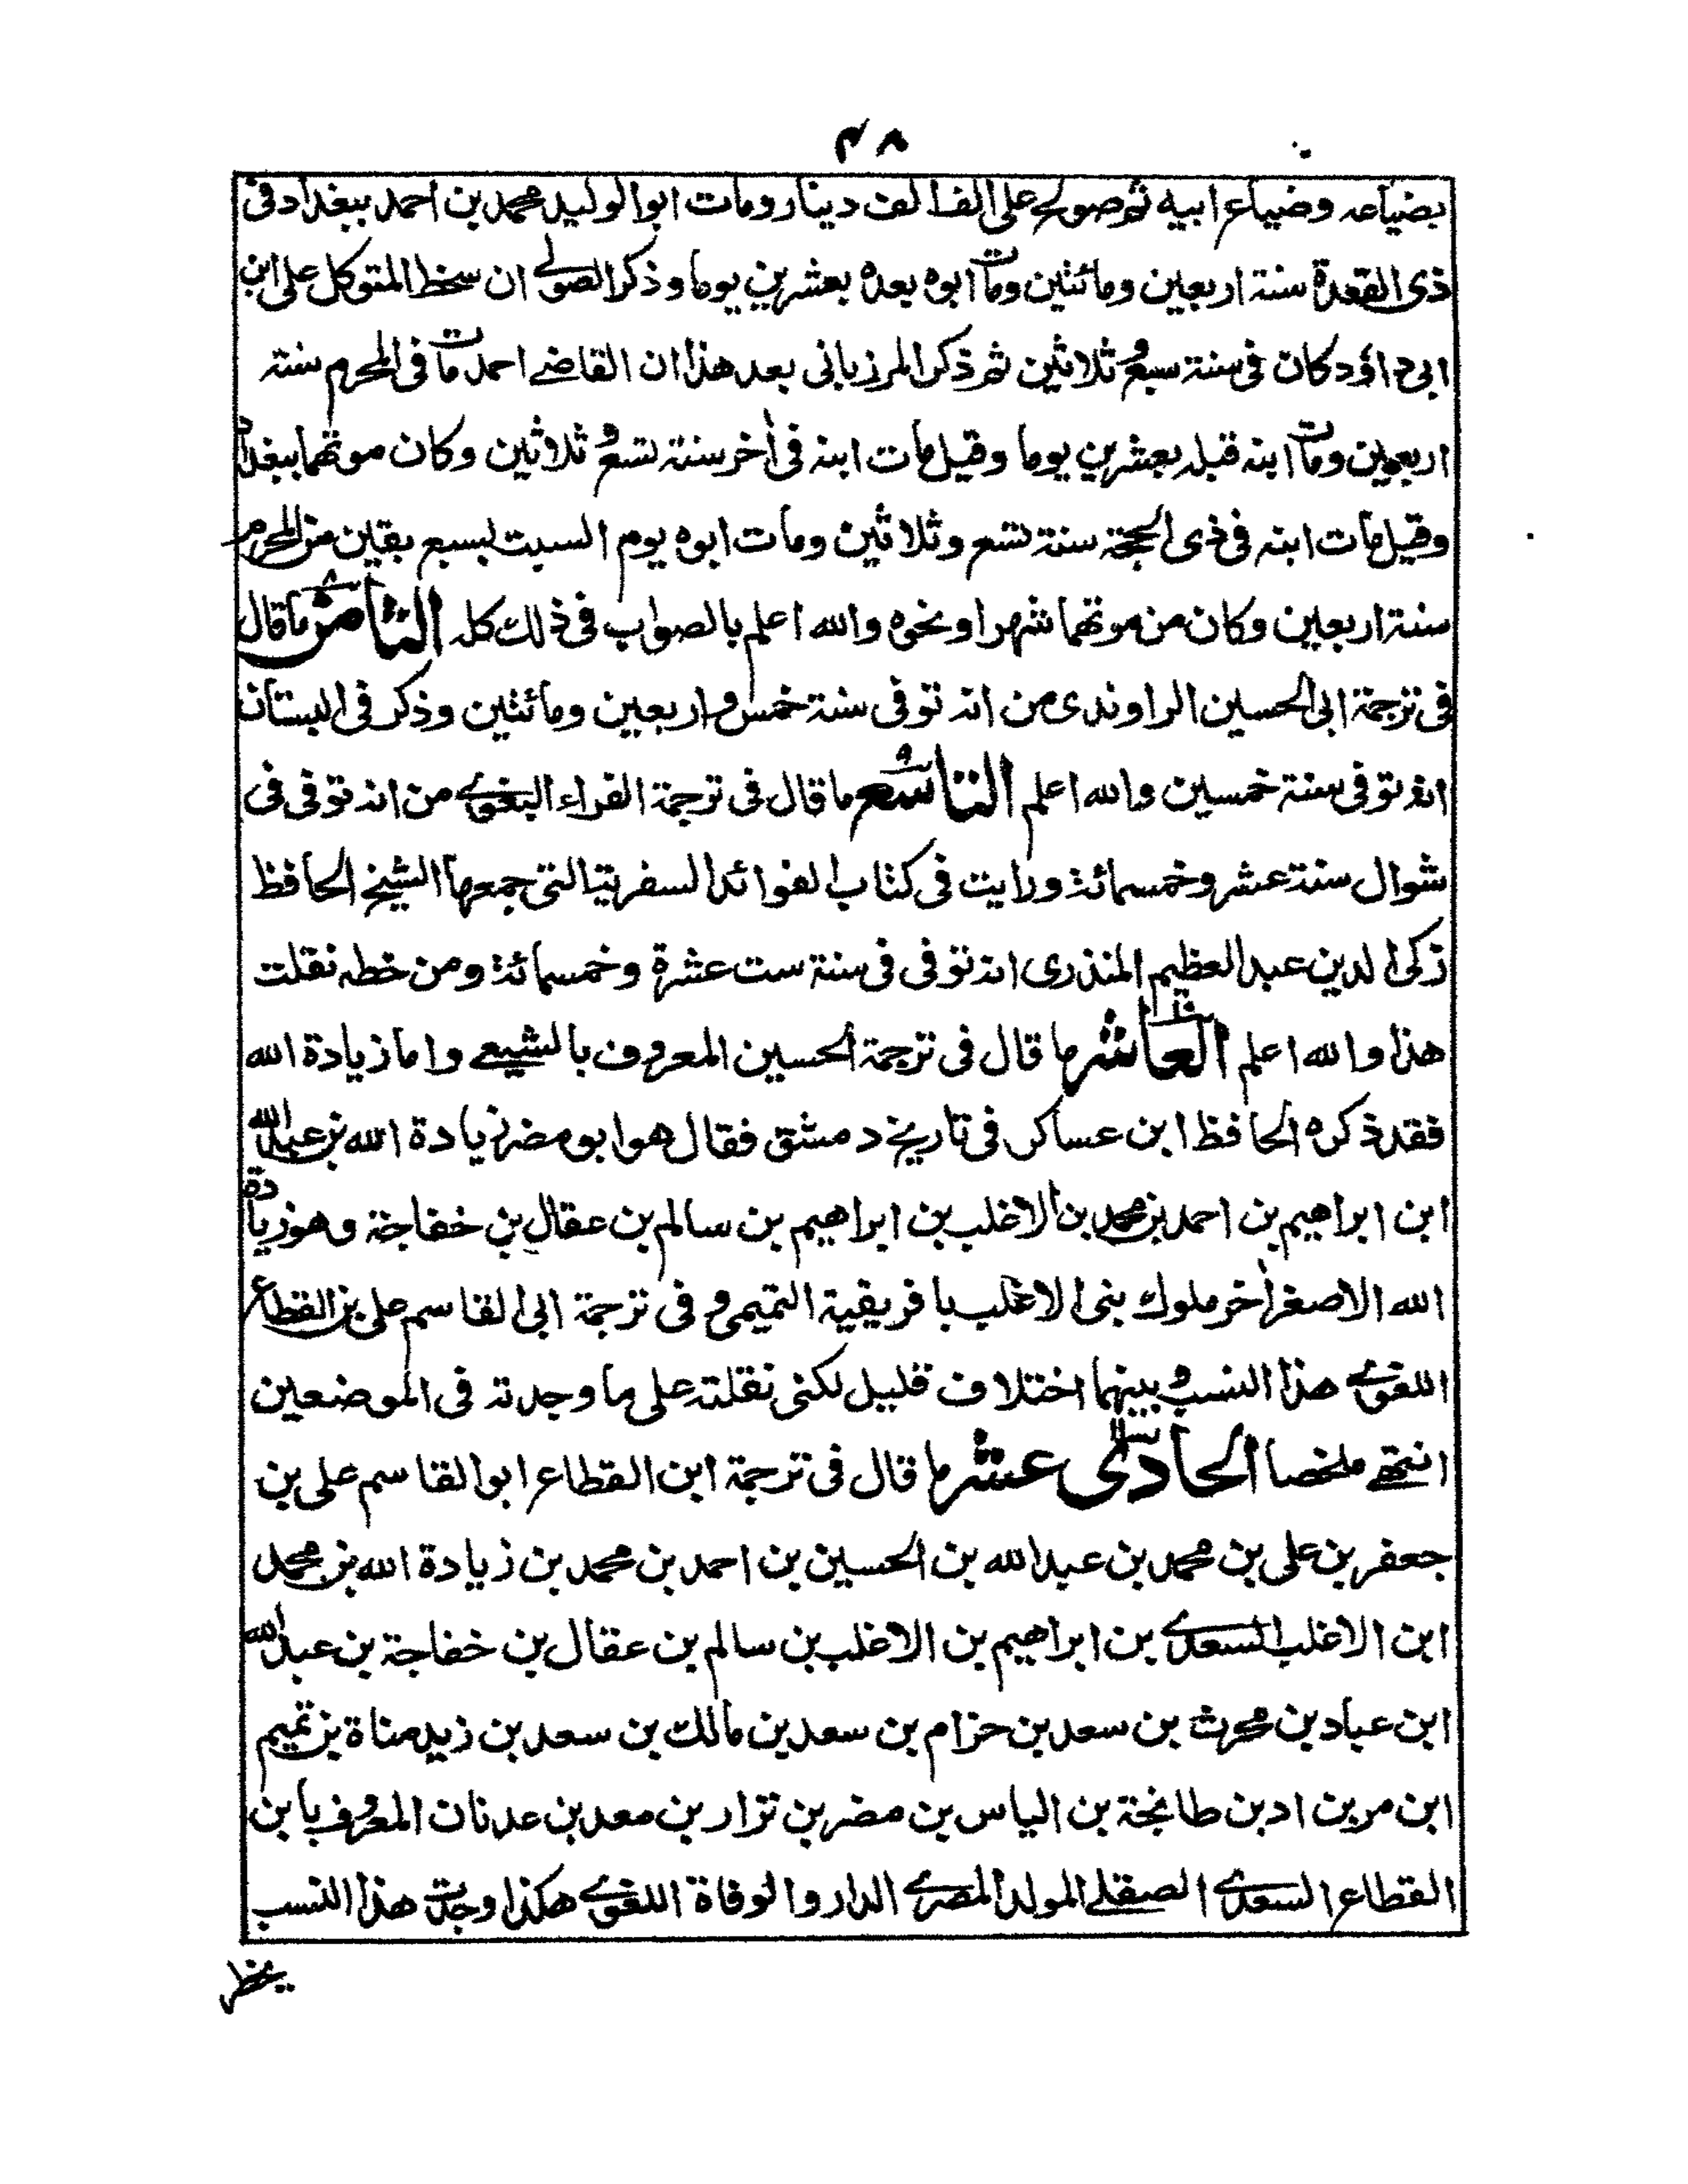 ٤٨
بضياعه وضياع ابيه ثم صولح على الف الف دينار ومات ابو الوليد محمد بن احمد ببغداد فى
ذى القعدة سنة اربعين ومائتين ومات ابوه بعده بعشرين يوما وذكر الصولے ان سخط المتوكل على ابن
ابى داؤد كان فى سنة سبع وثلاثين ثم ذكر المرزبانى بعد هذا ان القاضے احمد مات فى المحرم سنة
اربعين ومات ابنه قبله بعشرين يوما وقيل مات ابنه فى أخر سنة تسع وثلاثين وكان موتهما ببغداد
وقيل مات ابنه فى ذى الحجة سنة تسع وثلاثين ومات ابوه يوم السبت لسبع بقين من المحرم
سنة اربعين وكان من موتهما شهر او نحوه والله اعلم بالصواب فى ذلك كله الثامن ما قال
فى ترجمة ابى الحسين الراوندى من انه توفى سنة خمس واربعين ومائتين وذكر فى البستان
انه توفى سنة خمسين والله اعلم التاسع ما قال فى ترجمة الفراء البغوے من انه توفى فى
شوال سنة عشر وخمسمائة ورايت فى كتاب الفوائد السفرية التى جمعها الشيخ الحافظ
زكى الدين عبد العظيم المنذرى انه توفى فى سنة ست عشرة وخمسمائة ومن خطه نقلت
هذا والله اعلم العاشر ما قال فى ترجمة الحسين المعروف بالشيعے واما زيادة الله
فقد ذكره الحافظ ابن عساكر فى تاريخ دمشق فقال هو ابو مضر زيادة الله بن عبد الله
ابن ابراهيم بن احمد بن محمد بن الاغلب بن ابراهيم بن سالم بن عقال بن خفاجة وهو زيادة
الله الاصغر أخر ملوك بنى الاغلب بافريقية التميمى وفى ترجمة ابى القاسم على بن القطاع
اللغوے هذا النسب وبينهما اختلاف قليل لكنى نقلته على ما وجدته فى الموضعين
انتهے ملخصا الحادى عشر ما قال فى ترجمة ابن القطاع ابو القاسم على بن
جعفر بن على بن محمد بن عبد الله بن الحسين بن احمد بن محمد بن زيادة الله بن محمد
ابن الاغلب السعدے بن ابراهيم بن الاغلب بن سالم بن عقال بن خفاجة بن عبد الله
ابن عباد بن محرث بن سعد بن حزام بن سعد بن مالك بن سعد بن زيد مناة بن تميم
ابن مر بن اد بن طانجة بن الياس بن مضر بن نزار بن معد بن عدنان المعروف بابن
القطاع السعدے الصقلے المولد المصرے الدار والوفاة اللغوے هكذا وجدت هذا النسب
بخط